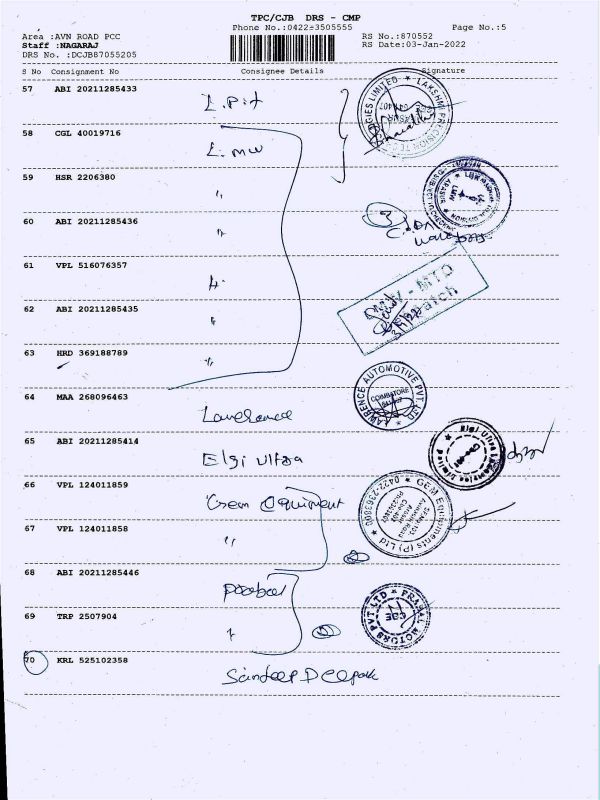 TPC/CJB DRS - CMP
Phone No.:0422-3505555
Page No.:5
Area :AVN ROAD PCC
Staff :NAGARAJ
DRS No. :DCJB87055205
RS No.:870552
RS Date:03-Jan-2022
S No Consignment No Consignee Details Signature
57 ABI 20211285433
L.P.T
58 CGL 40019716
L.MW
59 HSR 2206380
"
60 ABI 20211285436
"
61 VPL 516076357
62 ABI 20211285435
"
63 HRD 369188789
"
64 MAA 268096463
LAWRENCE AUTOMOTIVE PVT. LTD
COIMBATORE
65 ABI 20211285414
Elgi Ultra
Elgi Ultra Industries Limited
66 VPL 124011859
Gem Equipment
GEM Equipments (P) Ltd
0422-2363800
67 VPL 124011858
"
68 ABI 20211285446
69 TRP 2507904
PRABAL MOTORS PVT LTD
CBE
70 KRL 525102358
Sandeep Deepak